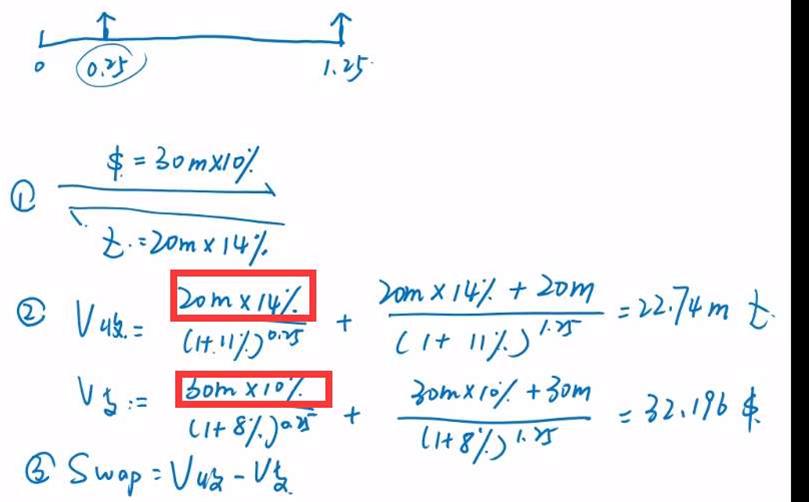 0 0.25 1.25
① $ = 30m×10%
£ = 20m × 14%
② V收 = 20m×14% / (1+11%)^0.25 + 20m×14% + 20m / (1+11%)^1.25 = 22.74m £
V支 = 30m×10% / (1+8%)^0.25 + 30m×10% + 30m / (1+8%)^1.25 = 32.196 $
③ Swap = V收 - V支